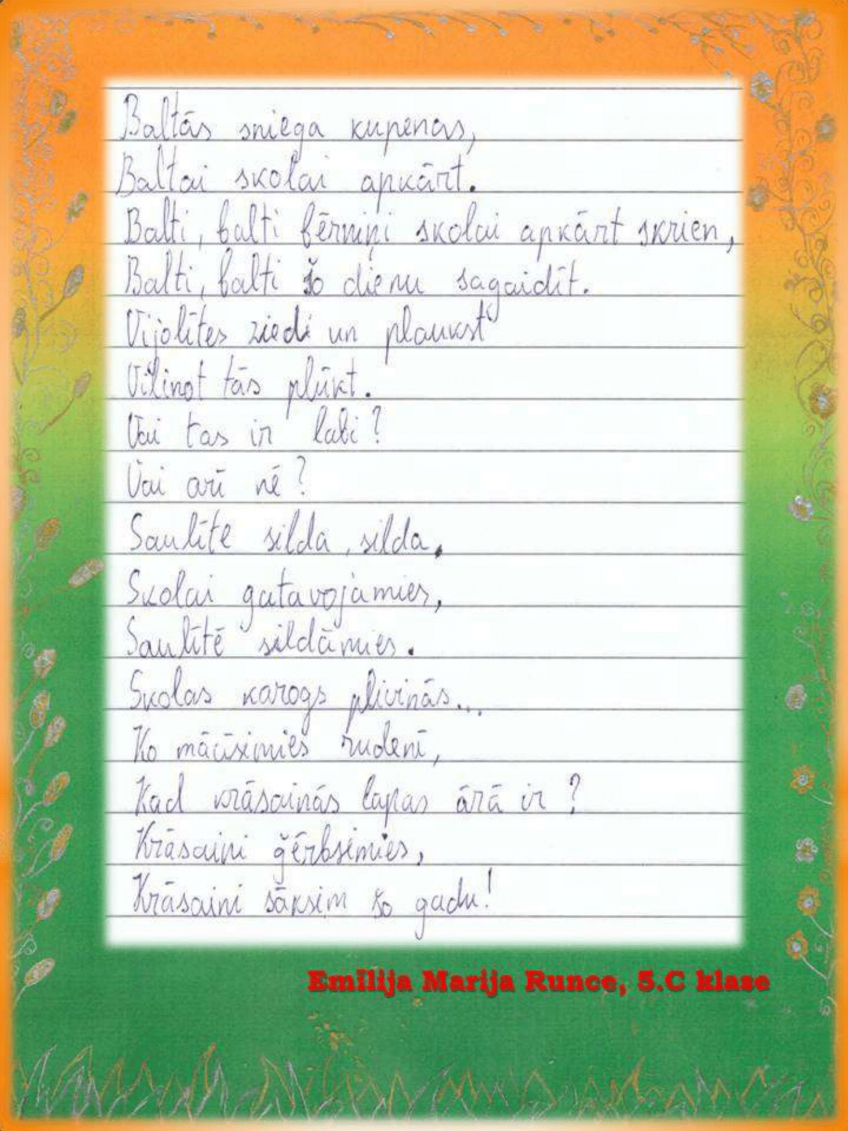 Baltās sniega kupenas,
Baltai skolai apkārt.
Balti, balti bērniņi skolai apkārt skrien,
Balti, balti šo dienu sagaidīt.
Vijolītes ziedi un plaukst
Vilinot tās plūkt.
Vai tas ir labi?
Vai arī nē?
Saulīte silda, silda,
Skolai gatavojamies,
Saulītē sildāmies.
Skolas karogs plivinās...
Ko mācīsimies rudenī,
Kad krāsainās lapas ārā ir?
Krāsaini ģērbsimies,
Krāsaini sāksim šo gadu!
Emīlija Marija Runce, 5.C klase